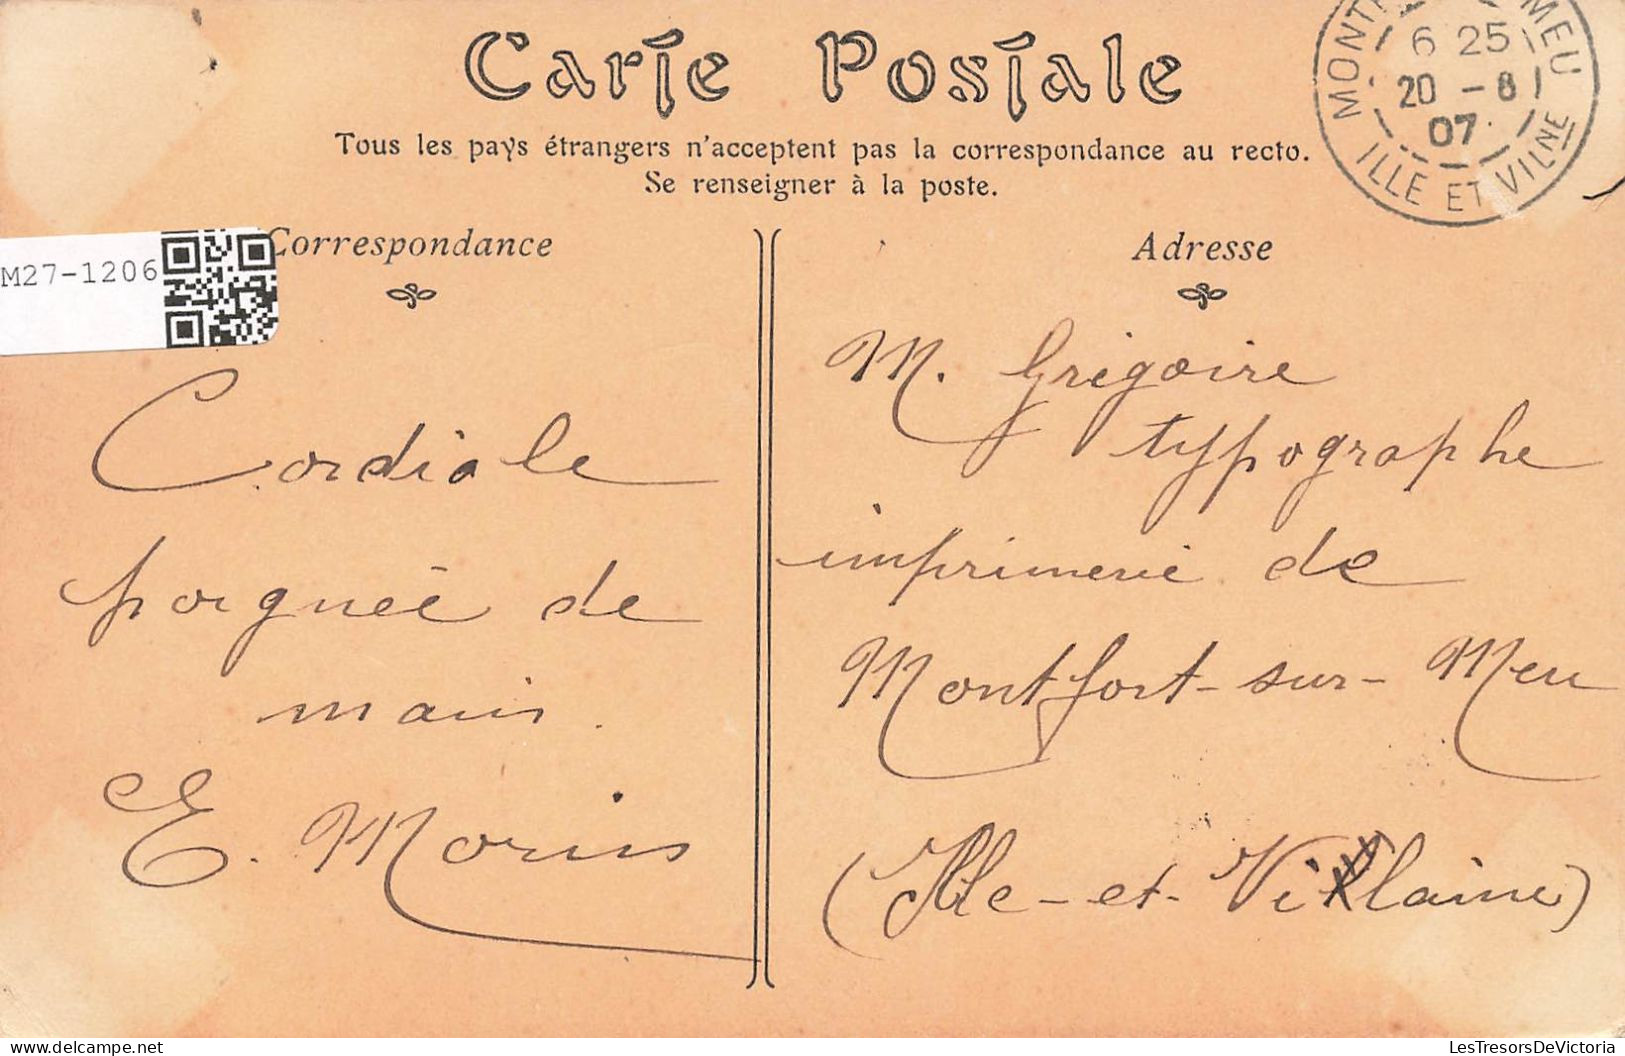 Carte Postale
Tous les pays étrangers n'acceptent pas la correspondance au recto.
Se renseigner à la poste.
6 25
20 - 8
07
ILLE ET VILNE
M27-1206
Correspondance
Cordiale
poignée de
main.
E. Morin
Adresse
M. Grégoire
typographe
imprimerie de
Montfort-sur-Meu
(Ille-et-Vilaine)
LesTresorsDeVictoria